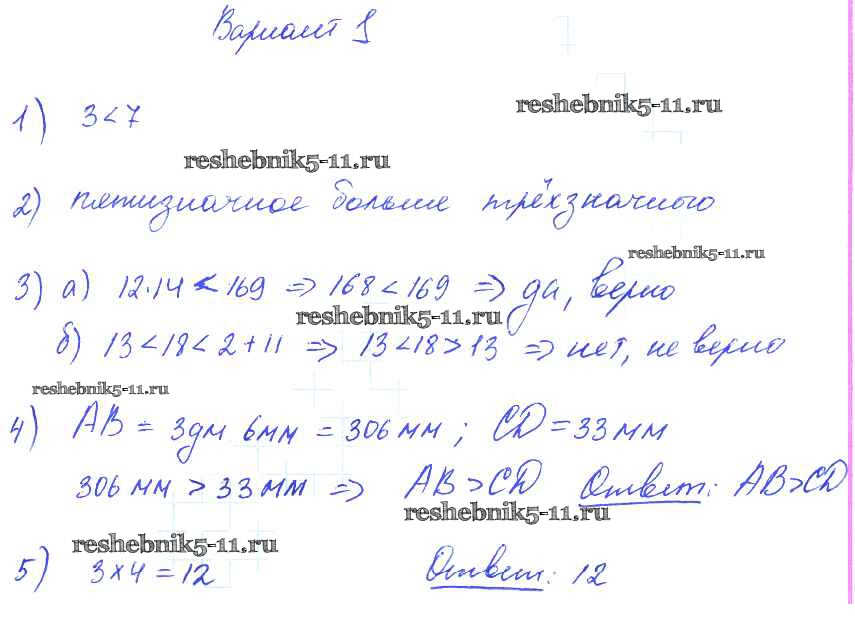 Вариант 1
reshebnik5-11.ru
1) 3<7
reshebnik5-11.ru
2) пятизначное больше трёхзначного
reshebnik5-11.ru
3) а) 12·14 < 169 => 168 < 169 => да, верно
reshebnik5-11.ru
б) 13 < 18 < 2 + 11 => 13 < 18 > 13 => нет, не верно
reshebnik5-11.ru
4) AB = 3дм 6мм = 306 мм ; CD = 33 мм
306 мм > 33 мм => AB > CD Ответ: AB > CD
reshebnik5-11.ru
reshebnik5-11.ru
5) 3 × 4 = 12 Ответ: 12